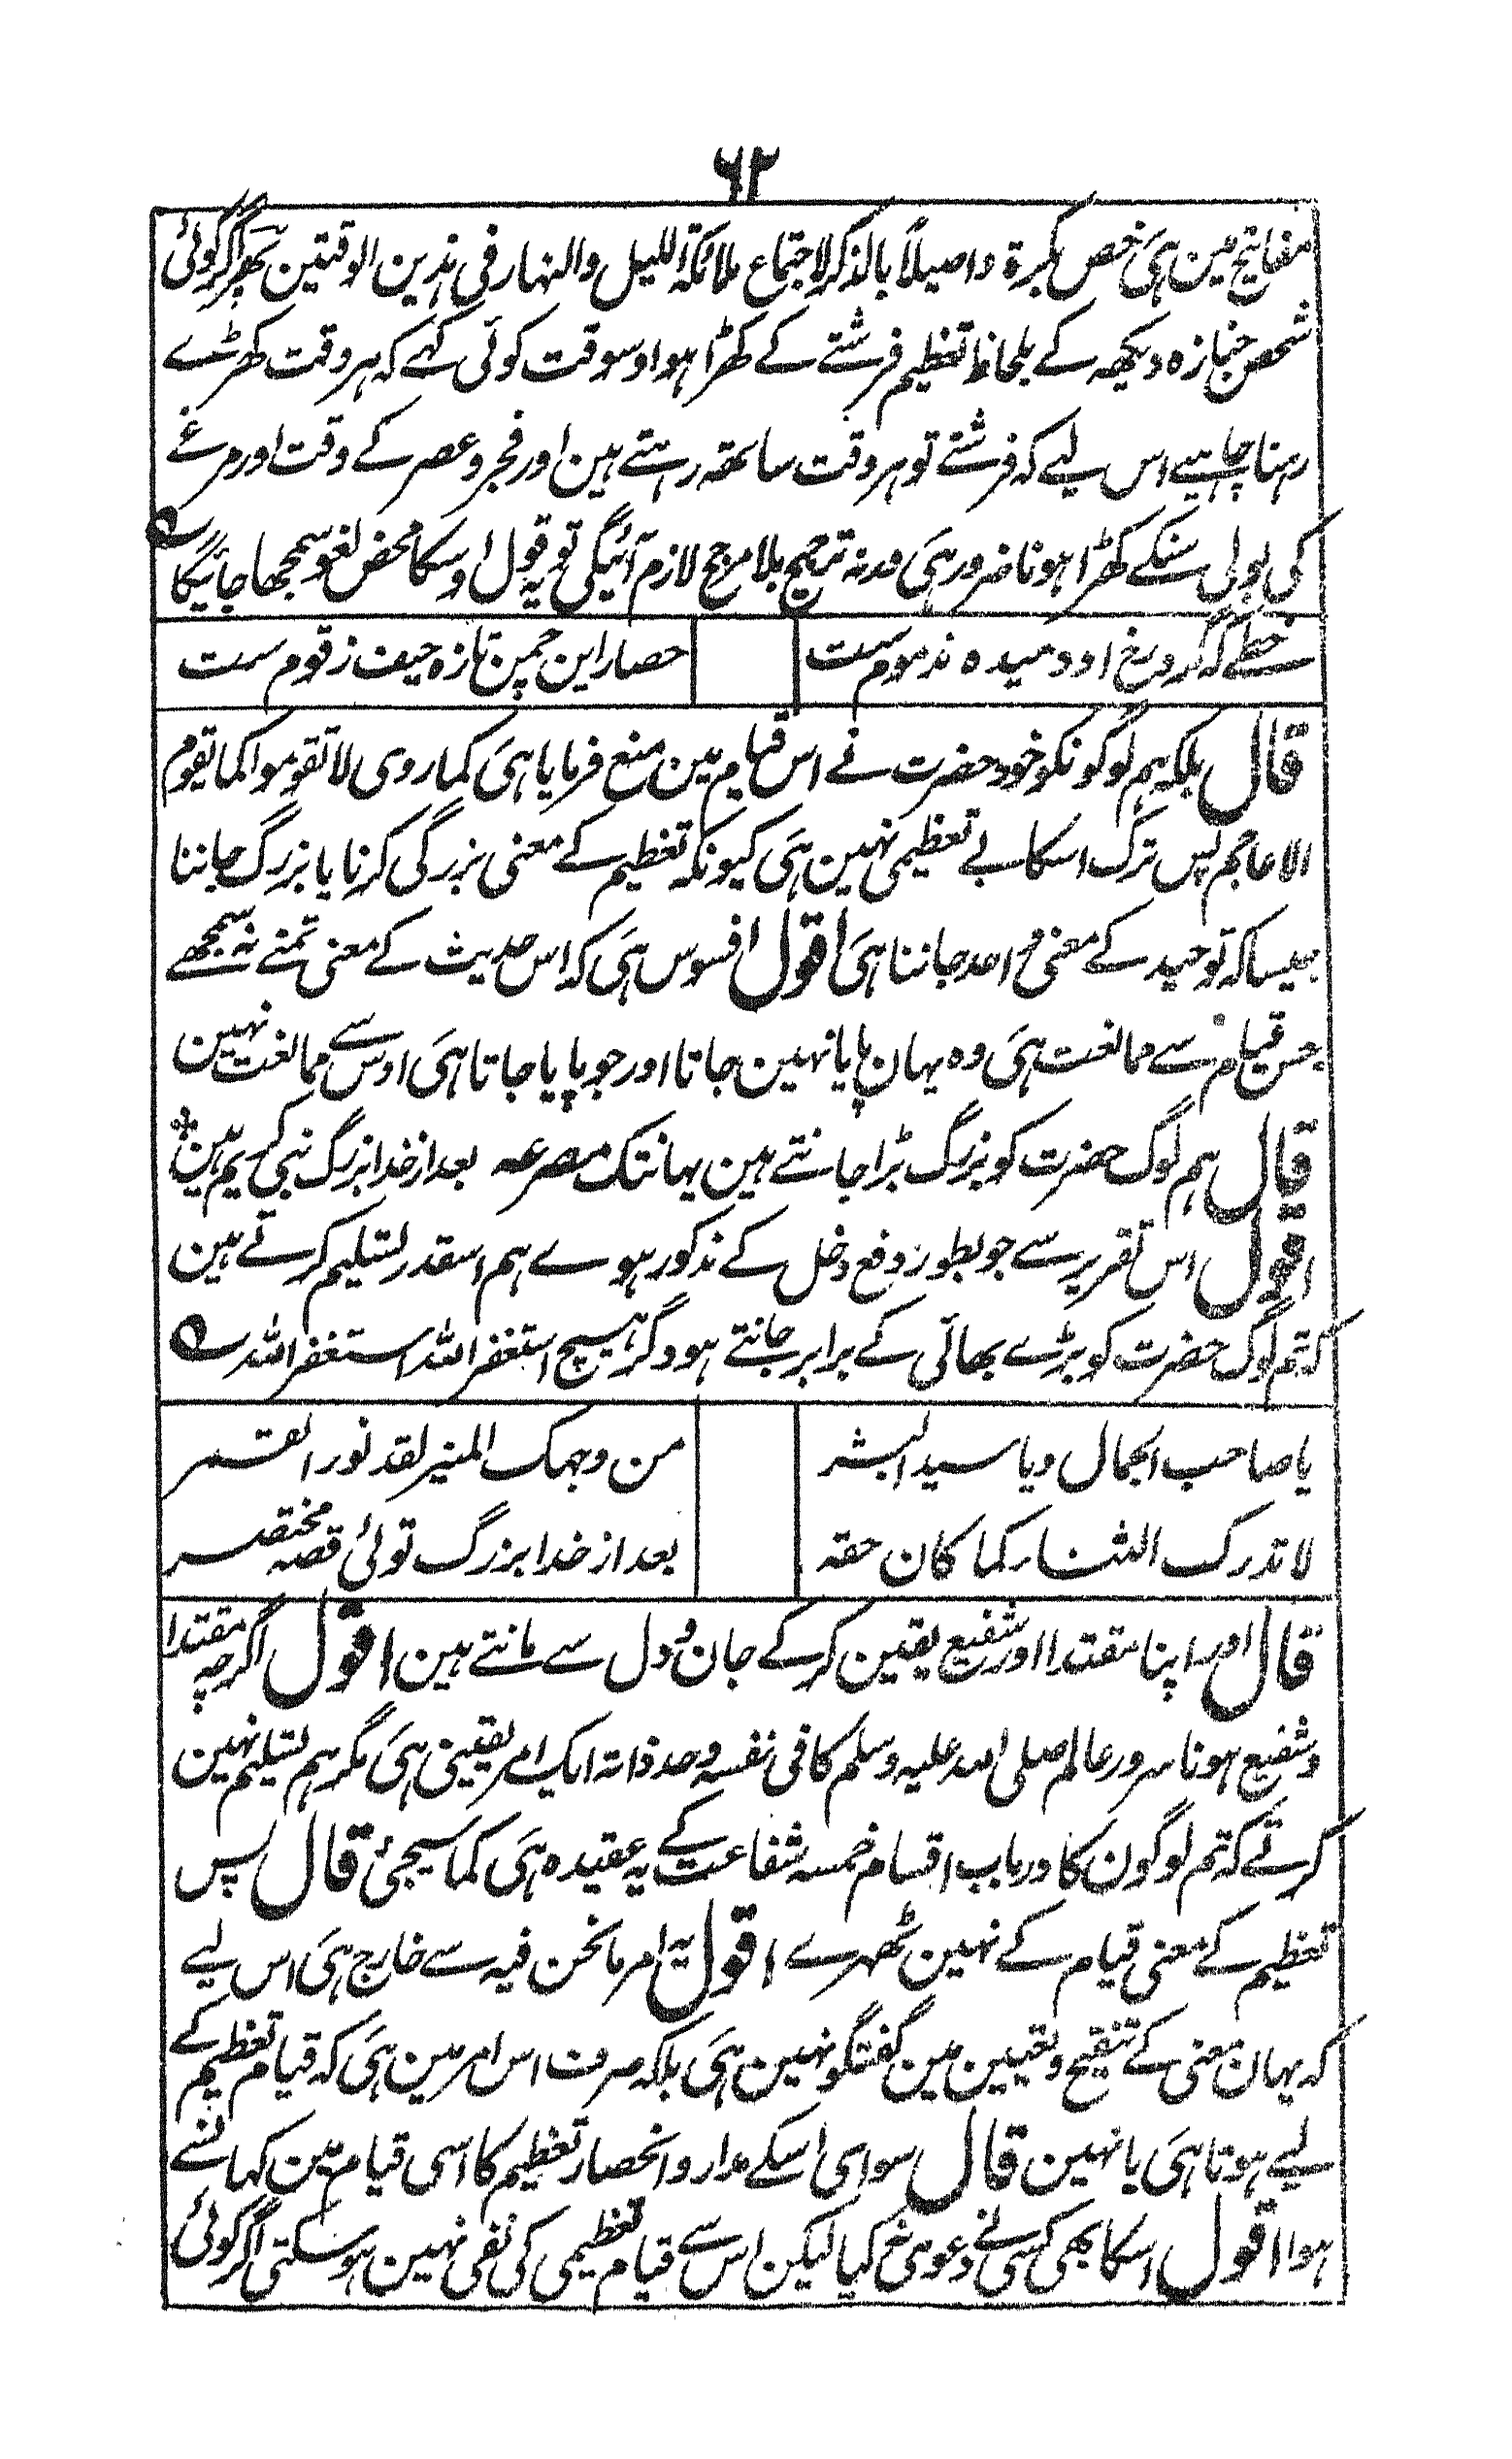 ۶۲
مفاتیح مین ہی خص بکرة واصیلاً بالذکر لاجتماع ملائکة اللیل والنہار فی ہذین الوقتین پھر اگر کوئی
شخص جنازہ دیکھہ کے بلحاظ تعظیم فرشتے کے کھڑا ہوا وسوقت کوئی کہے کہ ہر وقت کھڑے
رہنا چاہیے اس لیے کہ فرشتے تو ہر وقت ساتھہ رہتے ہین اور فجر و عصر کے وقت اور مرغے
کی بولی سنکے کھڑا ہونا ضرور ہی ورنہ ترجیح بلا مرجح لازم آئیگی تو یہ قول اوسکا محض لغو سمجھا جائیگا ؎
خطے کہ گرد رخ او دمیدہ مذموم ست
حصار این چمن تازہ حیف زقوم ست
قال بلکہ ہم لوگونکو خود حضرت نے اس قیام مین منع فرمایا ہی کما روی لا تقوموا کما یقوم
الاعاجم پس ترک اسکا بے تعظیمی نہین ہی کیونکہ تعظیم کے معنی بزرگی کرنا یا بزرگ جاننا
جیسا کہ توحید کے معنی احد جاننا ہی اقول افسوس ہی کہ اس حدیث کے معنی تمنے نہ سمجھے
جس قیام سے ممانعت ہی وہ یہان پایا نہین جاتا اور جو پایا جاتا ہی اوس سے ممانعت نہین
قال ہم لوگ حضرت کو بزرگ بڑا جانتے ہین یہانتک مصرعہ بعد از خدا بزرگ نبی کریم ہین ٭
اقول اس تقریر سے جو بطور دفع دخل کے مذکور ہوے ہم اسقدر تسلیم کرتے ہین
کہ تم لوگ حضرت کو بڑے بھائی کے برابر جانتے ہو دگر ہیچ استغفر اللہ استغفر اللہ ؎
یا صاحب الجمال ویا سید البشر
من وجہک المنیر لقد نور القمر
لا تدرک الثنار کما کان حقہ
بعد از خدا بزرگ توئی قصہ مختصر
قال اور اپنا مقتدا اور شفیع یقین کرکے جان و دل سے مانتے ہین اقول اگرچہ مقتدا
و شفیع ہونا سرور عالم صلی اللہ علیہ وسلم کا فی نفسہ و حد ذاتہ ایک امر یقینی ہی مگر ہم تسلیم نہین
کرتے کہ تم لوگون کا درباب اقسام خمسہ شفاعت کے یہ عقیدہ ہی کما سیجیٔ قال پس
تعظیم کے معنی قیام کے نہین ٹھہرے اقول یہ امر مانحن فیہ سے خارج ہی اس لیے
کہ یہان معنی کے تنقیح و تعیین مین گفتگو نہین ہی بلکہ صرف اس امر مین ہی کہ قیام تعظیم کے
لیے ہوتا ہی یا نہین قال سوای اسکے مدار و انحصار تعظیم کا اسی قیام مین کہانسے
ہوا اقول اسکا بھی کسی نے دعوی کیا لیکن اس سے قیام تعظیمی کی نفی نہین ہو سکتی اگر کوئی